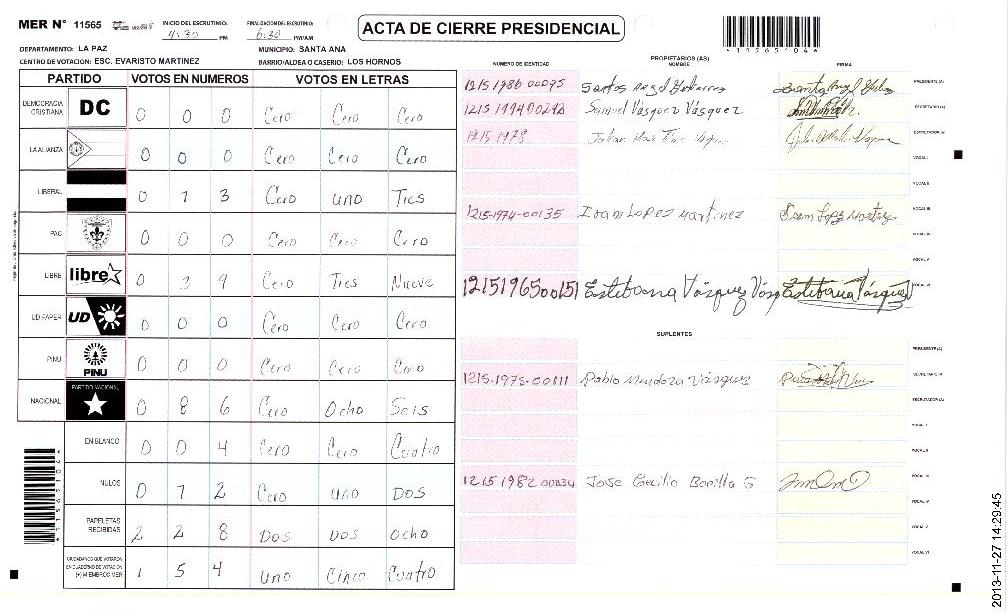 MER N° 11565
INICIO DEL ESCRUTINIO:
4:30 PM
FINALIZACION DEL ESCRUTINIO:
6:30 PM/AM
ACTA DE CIERRE PRESIDENCIAL
*1156504*
DEPARTAMENTO: LA PAZ
MUNICIPIO: SANTA ANA
CENTRO DE VOTACION: ESC. EVARISTO MARTINEZ
BARRIO/ALDEA O CASERIO: LOS HORNOS
PARTIDO VOTOS EN NUMEROS VOTOS EN LETRAS
DEMOCRACIA CRISTIANA DC 0 0 0 Cero Cero Cero
LA ALIANZA 0 0 0 Cero Cero Cero
LIBERAL 0 1 3 Cero uno Tres
PAC 0 0 0 Cero Cero Cero
LIBRE libre 0 3 9 Cero Tres Nueve
UD FAPER UD 0 0 0 Cero Cero Cero
PINU PINU 0 0 0 Cero Cero Cero
NACIONAL PARTIDO NACIONAL 0 8 6 Cero Ocho Seis
EN BLANCO 0 0 4 Cero Cero Cuatro
NULOS 0 1 2 Cero uno Dos
PAPELETAS RECIBIDAS 2 2 8 Dos Dos Ocho
CIUDADANOS QUE VOTARON EN CUADERNO DE VOTACION (+) MIEMBROS MER 1 5 4 uno Cinco Cuatro
PROPIETARIOS (AS)
NUMERO DE IDENTIDAD NOMBRE FIRMA
1215 1986 00095 Santos Angel PRESIDENTE (A)
1215 1994 Samuel Vásquez Vásquez SECRETARIO (A)
1215 1978 ESCRUTADOR (A)
VOCAL I
VOCAL II
1215-1974-00135 Isam Lopez martinez VOCAL III
VOCAL IV
VOCAL V
1215196500151 Estebana Vásquez Estebana Vásquez VOCAL VI
SUPLENTES
PRESIDENTE (A)
1215-1975-00111 Pablo Mendoza Vásquez SECRETARIO/A
ESCRUTADOR (A)
VOCAL I
VOCAL II
1215 1982 00034 Jose Cecilio Bonilla G VOCAL III
VOCAL IV
VOCAL V
VOCAL VI
*1156504*
2013-11-27 14:29:45